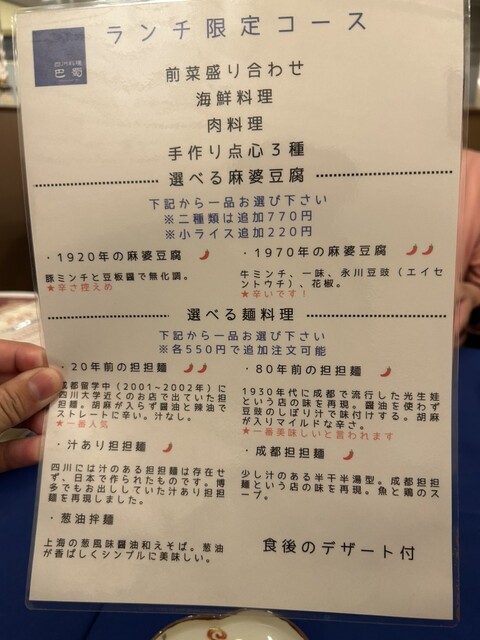 四川料理
巴蜀
ランチ限定コース
前菜盛り合わせ
海鮮料理
肉料理
手作り点心３種
選べる麻婆豆腐
下記から一品お選び下さい
※二種類は追加770円
※小ライス追加220円
・1920年の麻婆豆腐
豚ミンチと豆板醤で無化調。
★辛さ控えめ
・1970年の麻婆豆腐
牛ミンチ、一味、永川豆豉（エイセ
ントウチ）、花椒。
★辛いです！
選べる麺料理
下記から一品お選び下さい
※各550円で追加注文可能
・20年前の担担麺
成都留学中（2001~2002年）に
四川大学近くのお店で出ていた担
担麺。胡麻が入らず醤油と辣油で
ストレートに辛い。汁なし。
★一番人気
・80年前の担担麺
1930年代に成都で流行した光生蛙
という店の味を再現。醤油を使わず
豆豉のしぼり汁で味付けする。胡麻
が入りマイルドな辛さ。
★一番美味しいと言われます
・汁あり担担麺
四川には汁のある担担麺は存在せ
ず、日本で作られたものです。博
多でもお出ししていた汁あり担担
麺を再現しました。
・成都担担麺
少し汁のある半干半湯型。成都担担
麺という店の味を再現。魚と鶏のス
ープ。
・葱油拌麺
上海の葱風味醤油和えそば。葱油
が香ばしくシンプルに美味しい。
食後のデザート付